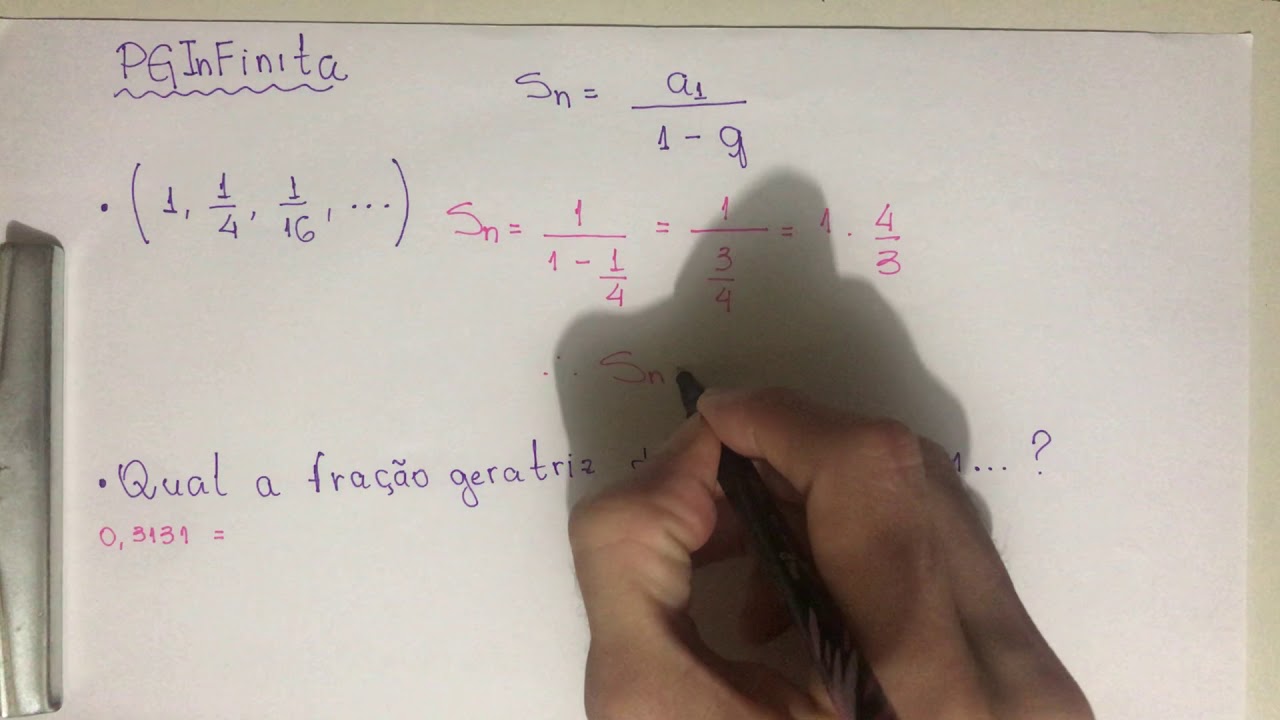 PGInFinita
Sn = a1 / (1 - q)
• (1, 1/4, 1/16, ...) Sn = 1 / (1 - 1/4) = 1 / (3/4) = 1 . 4/3
∴ Sn
• Qual a fração geratriz ... ?
0,3131 =